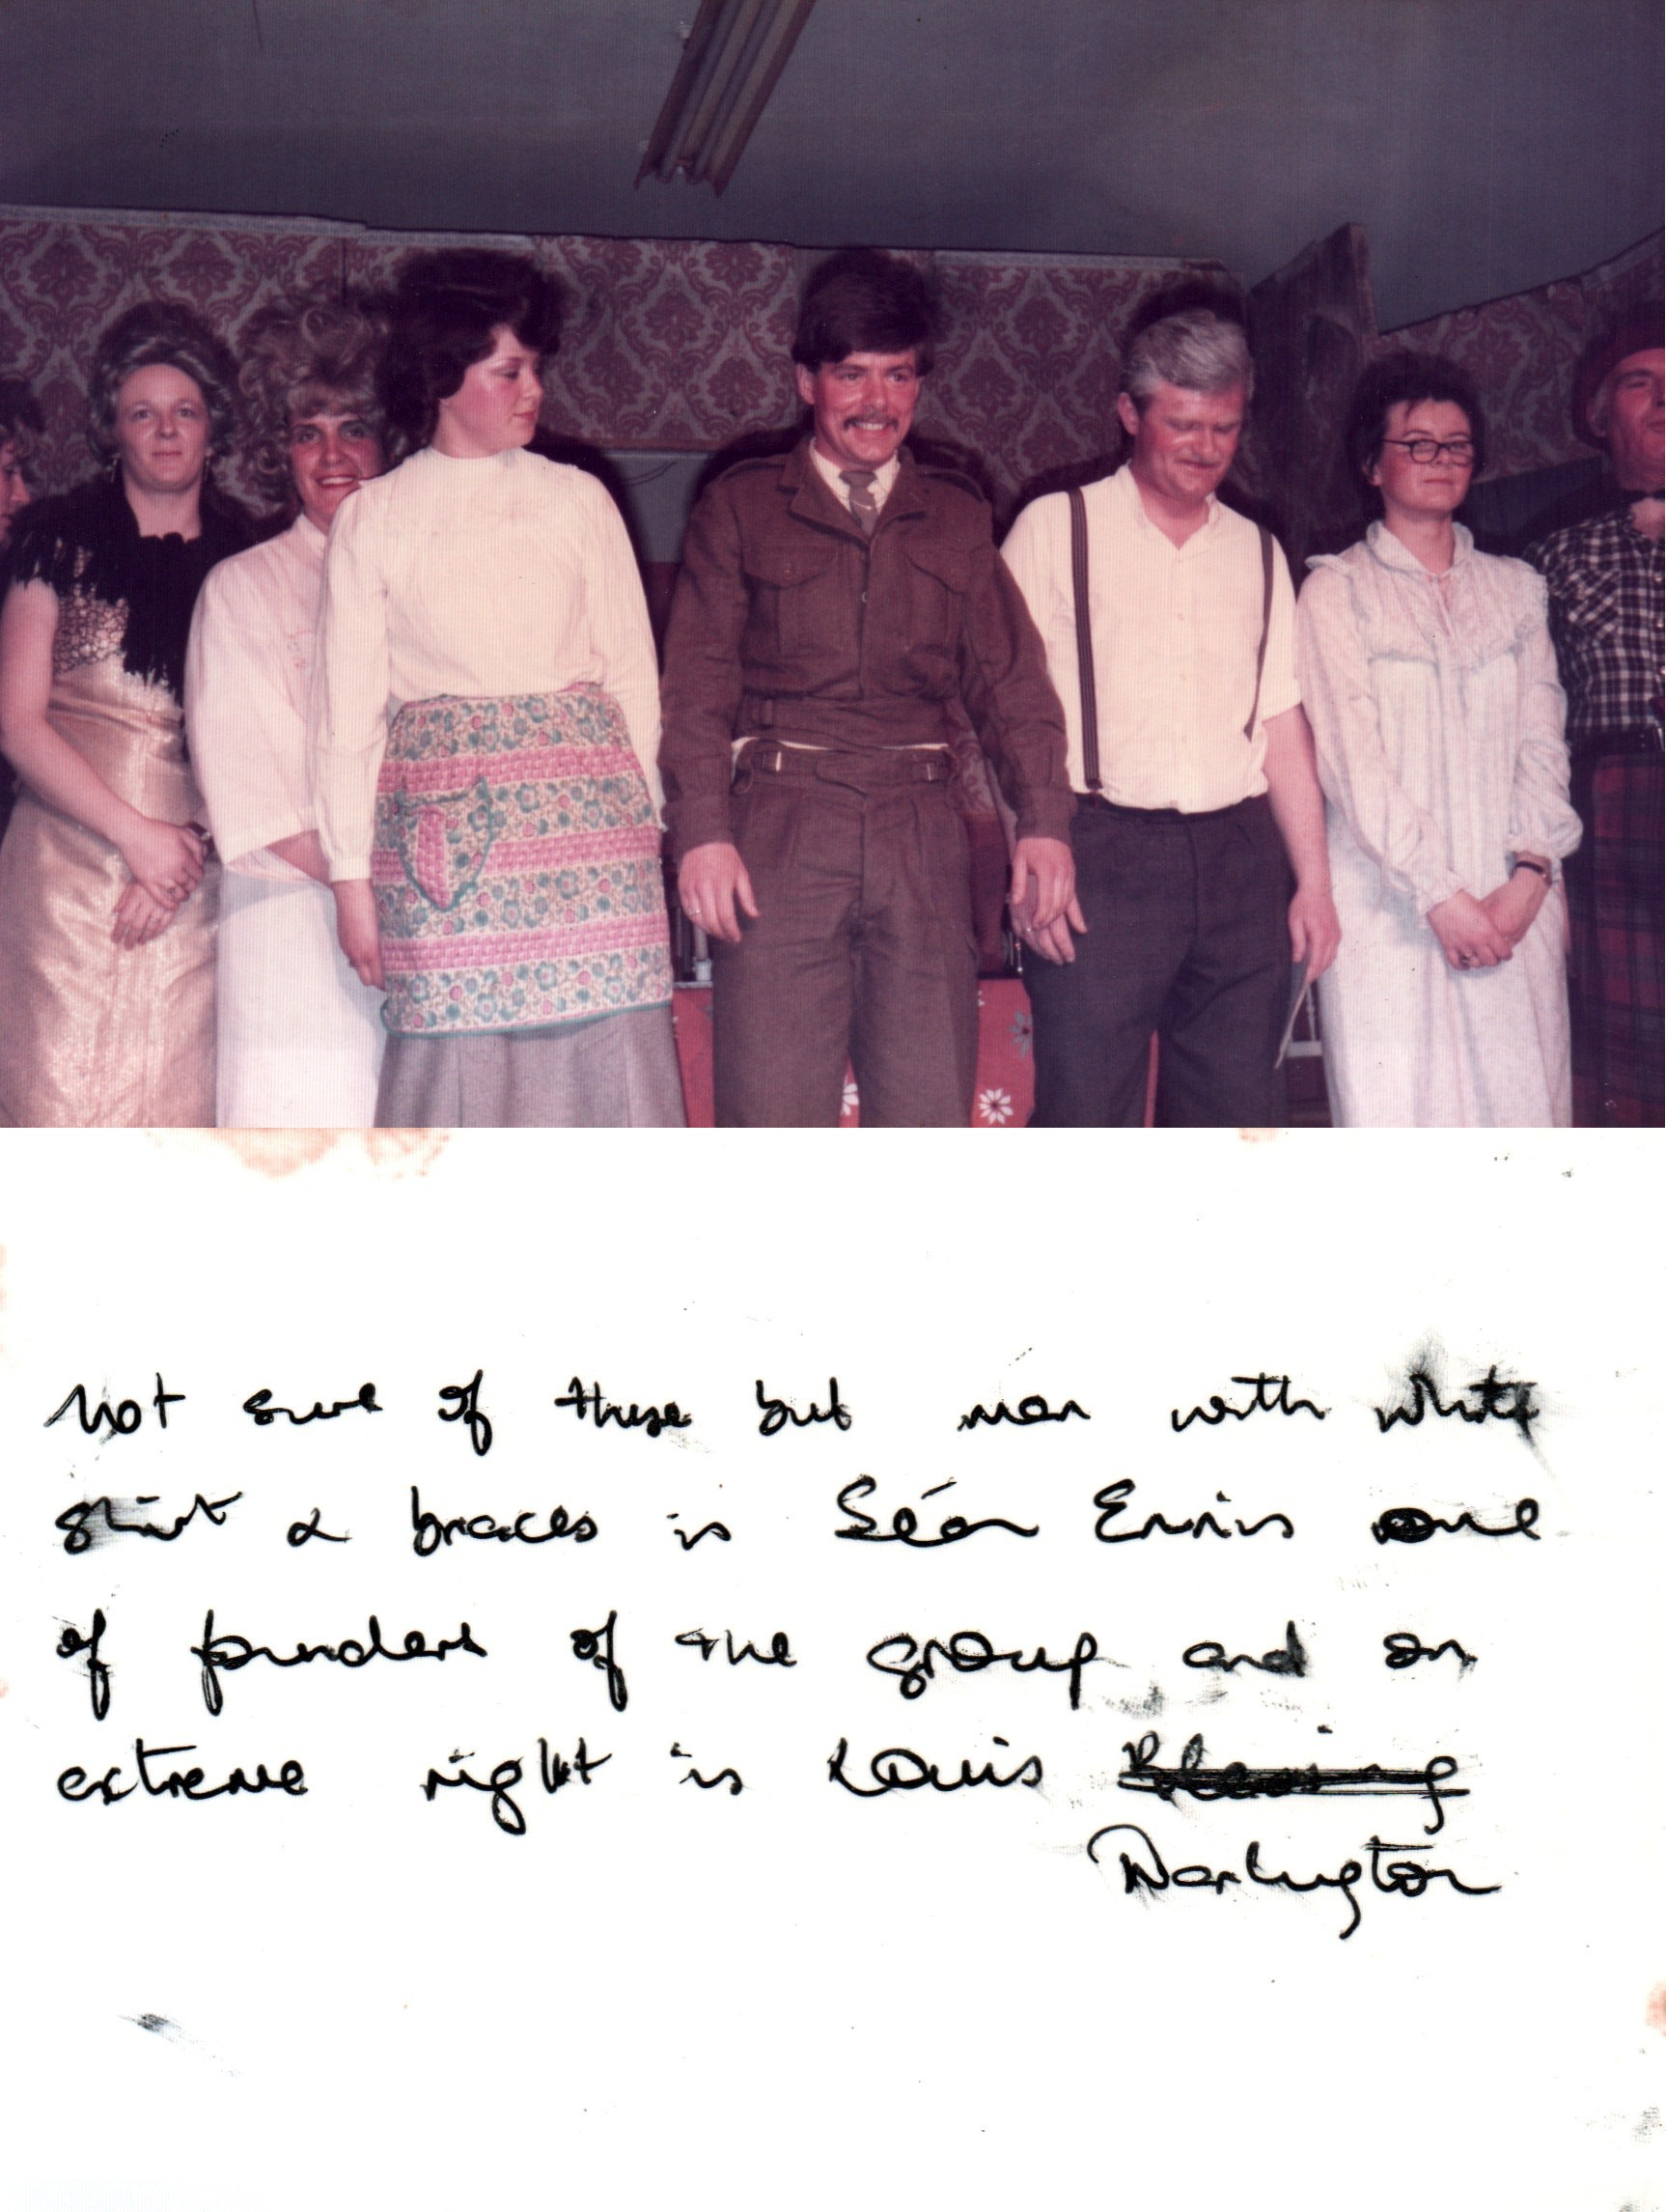 Not sure of these but man with white
shirt & braces is Séan Ennis one
of founders of the group and on
extreme right is Louis
Darlington